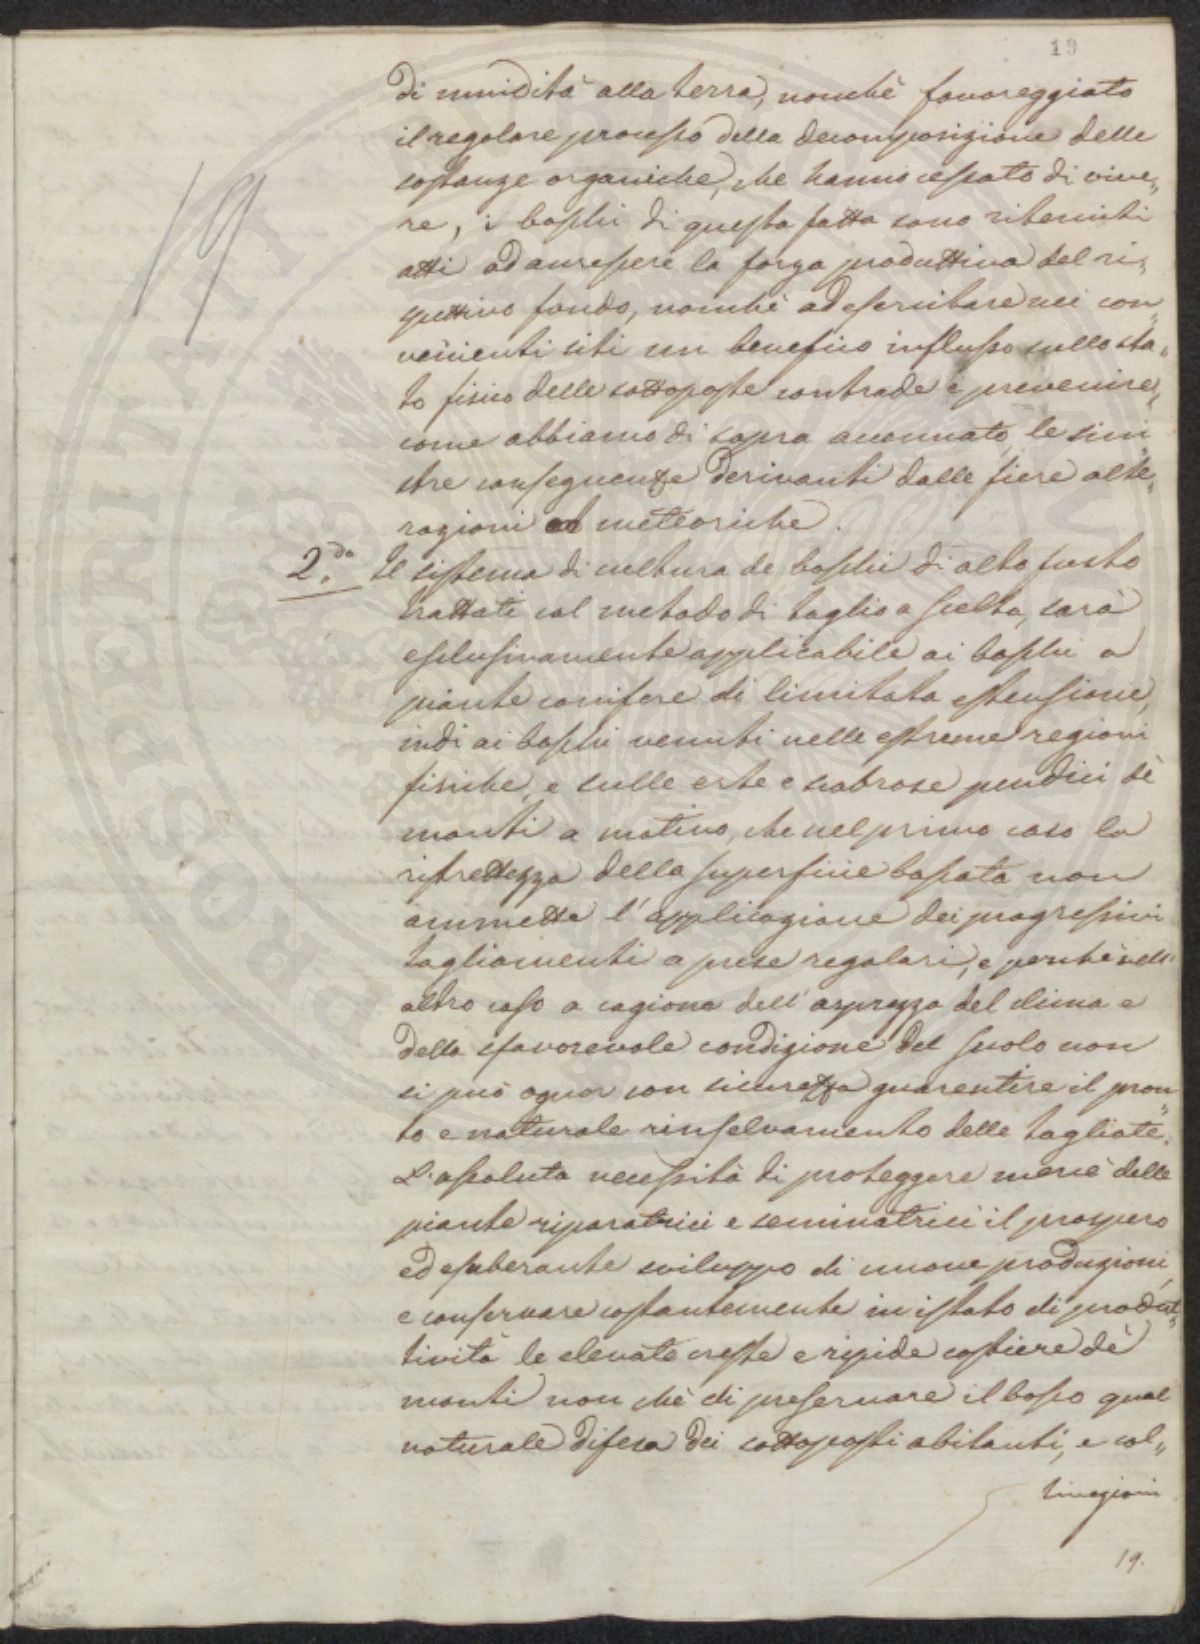 19
19
di umidità alla terra, nonchè favoreggiato
il regolare processo della decomposizione delle
sostanze organiche, che hanno cessato di vive„
re, i boschi di questa fatta sono ritenuti
atti ad accrescere la forza produttiva del ri„
spettivo fondo, nonchè ad esercitare nei con„
venienti siti un benefico influsso sullo sta„
to fisico delle sottoposte contrade e prevenire,
come abbiamo di sopra accennato, le sini„
stre conseguenze derivanti dalle fiere alte„
razioni meteoriche.
2.do Il sistema di cultura de boschi di alto fusto
trattati col metodo di taglio a scelta, sarà
esclusivamente applicabile ai boschi a
piante conifere di limitata estensione,
indi ai boschi venuti nelle estreme regioni
fisiche, e sulle erte e scabrose pendici dè
monti a motivo, che nel primo caso la
ristrettezza della superficie boscata non
ammette l'applicazione dei progressivi
tagliamenti a prese regolari, e perchè nell'
altro caso a cagione dell'asprezza del clima e
della sfavorevole condizione del suolo non
si può ognor con sicurezza guarentire il pron„
to e naturale rinselvamento delle tagliate.
L'assoluta necessità di proteggere mercè delle
piante riparatrici e seminatrici il prospero
ed esuberante sviluppo di nuove produzioni,
e conservare costantemente in istato di produt„
tività le elevate creste e ripide costiere dè
monti non chè di preservare il bosco qual
naturale difesa dei sottoposti abitanti, e col„
tivazioni
19.
PROSPERITATI